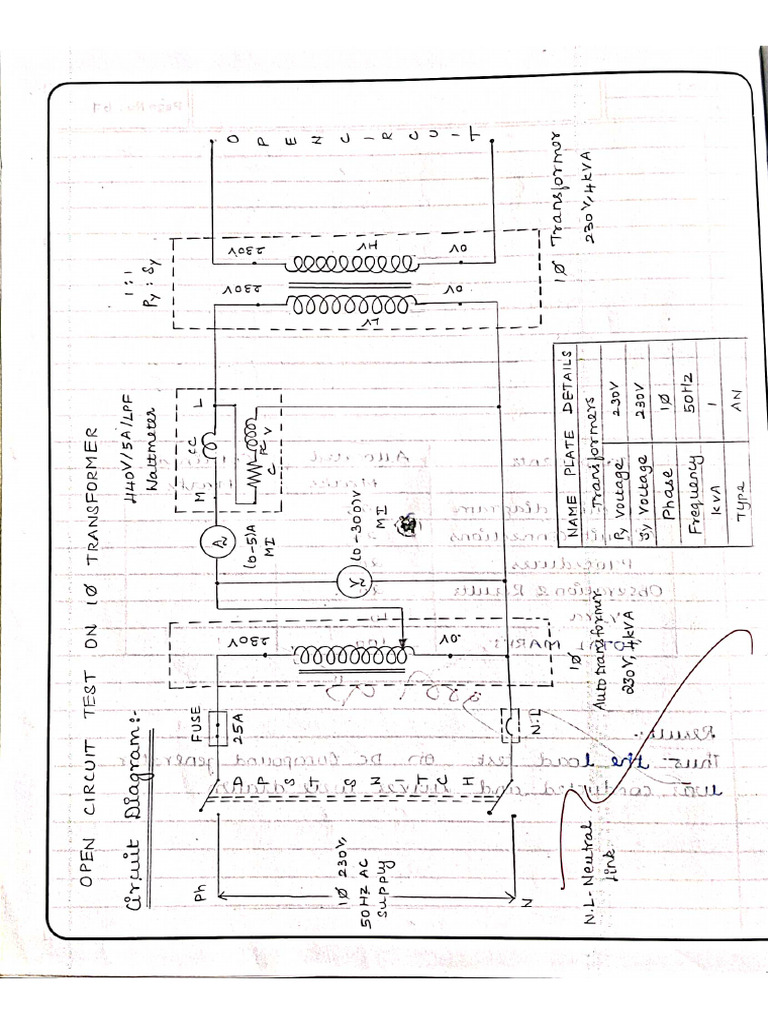 OPEN CIRCUIT TEST ON 1Ø TRANSFORMER
Circuit Diagram:-
Ph
1Ø 230V,
50HZ AC
Supply
N
DPST SWITCH
FUSE
25A
N.L
230V
0V
1Ø
Autotransformer
230V, 4kVA
A
(0-5)A
MI
V
(0-300)V
MI
440V/5A/LPF
Wattmeter
M
CC
L
C
PC
V
1:1
Py : Sy
230V
LV
0V
230V
HV
0V
OPEN CIRCUIT
1Ø Transformer
230V, 4kVA
N.L - Neutral
link
NAME PLATE DETAILS
Transformers
Py Voltage 230V
Sy Voltage 230V
Phase 1Ø
Frequency 50HZ
kVA 1
Type AN